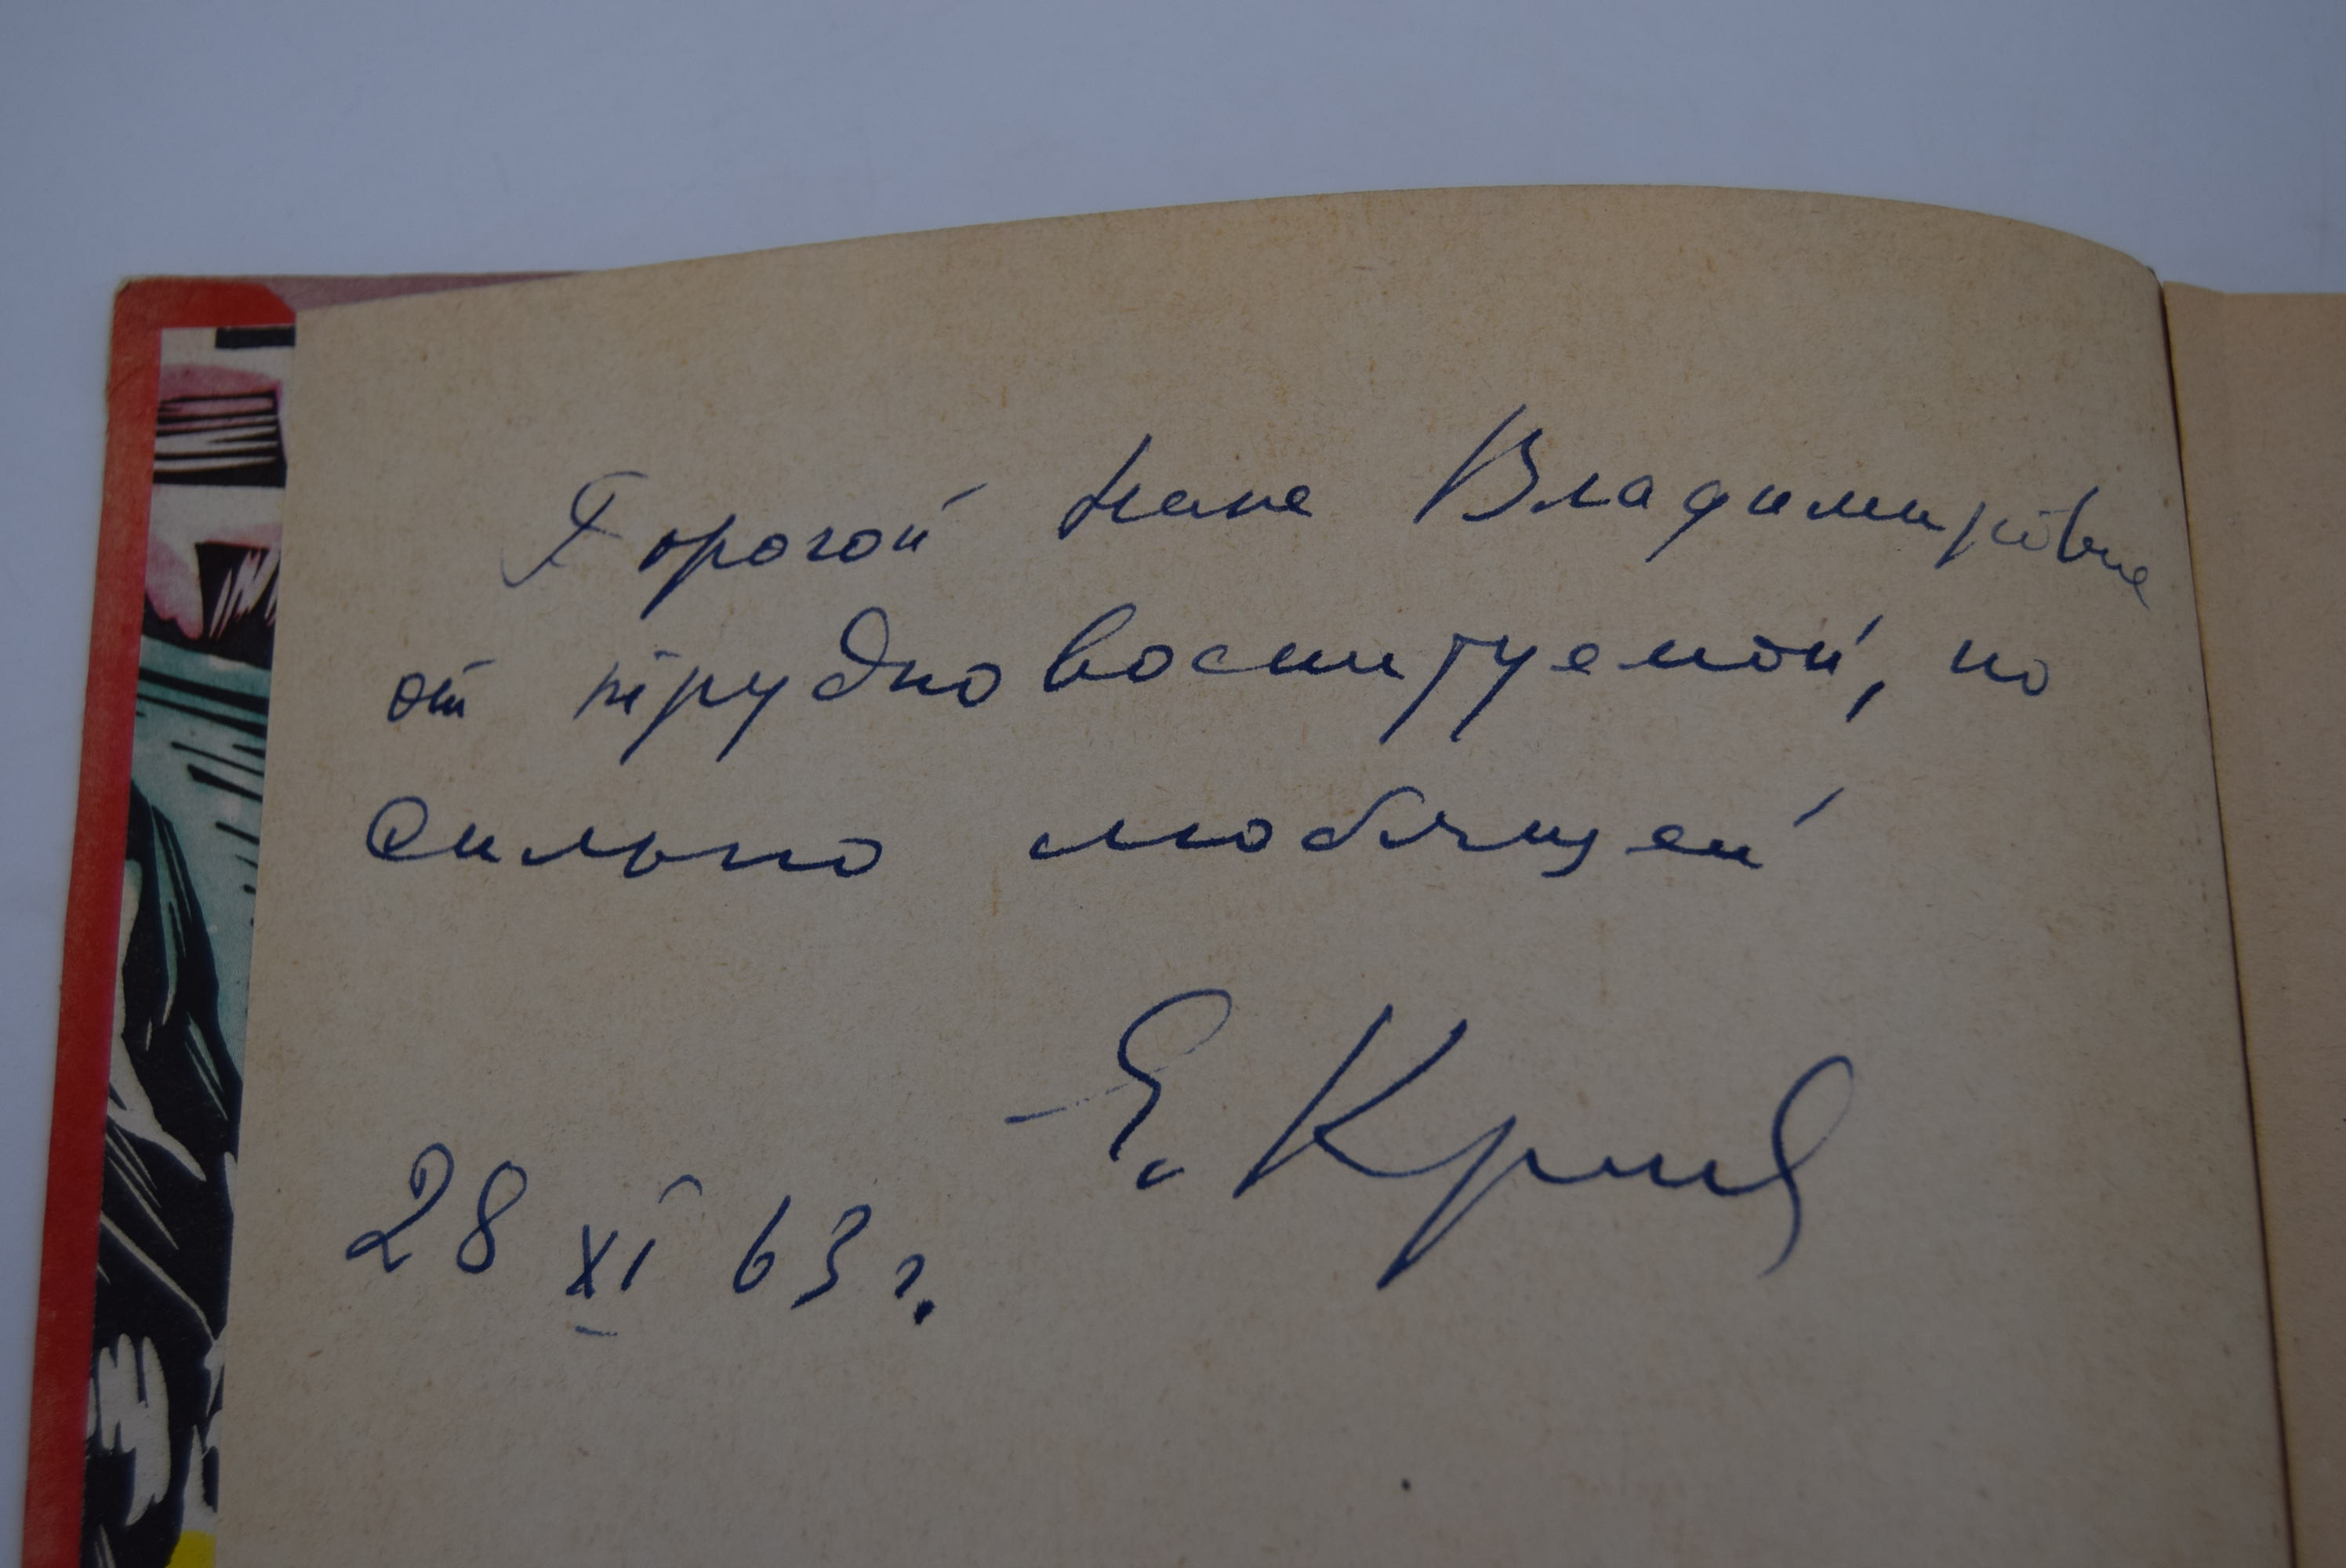 Дорогой Владимировне
от трудновоспитуемой, но
сильно любящей
Е.
28 XI 63 г.